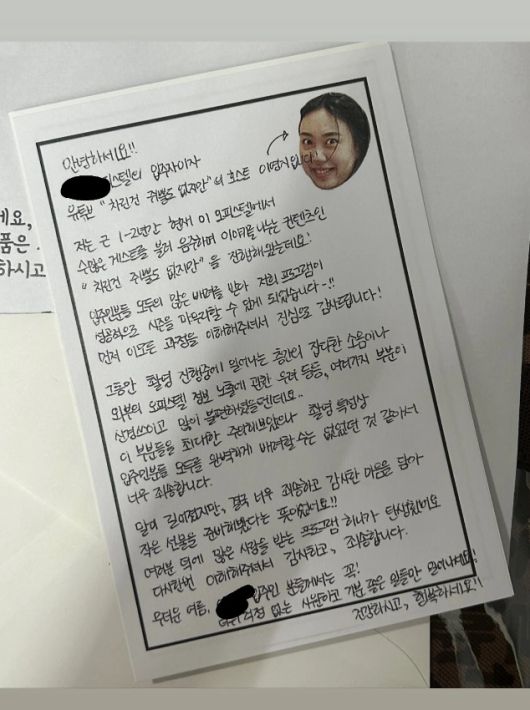 안녕하세요!!
스텔의 입주자이자
유튜브 "차린건 쥐뿔도 없지만"의 호스트 이영지입니다!
저는 근 1-2년간 현재 이 오피스텔에서
수많은 게스트를 불러 음주하며 이야기를 나누는 컨텐츠인
"차린건 쥐뿔도 없지만"을 진행해왔는데요!
입주민분들 모두의 많은 배려를 받아 저희 프로그램이
성공적으로 시즌을 마무리할 수 있게 되었습니다-!!
먼저 이모든 과정을 이해해주셔서 진심으로 감사드립니다!
그동안 촬영 진행중에 일어나는 층간의 잡다한 소음이나
외부의 오피스텔 정보 노출에 관한 우려 등등, 여러가지 부분이
신경쓰이고 많이 불편하셨을텐데요..
이 부분들을 최대한 주의해보았으나 촬영 특성상
입주민분들 모두를 완벽하게 배려할 수는 없었던 것 같아서
너무 죄송합니다.
말이 길어졌지만, 결국 너무 죄송하고 감사한 마음을 담아
작은 선물을 준비해봤다는 뜻이었어요!!
여러분 덕에 많은 사랑을 받는 프로그램 하나가 탄생했네요
다시한번 이해해주셔서 감사하고, 죄송합니다.
무더운 여름, 입주민 분들께서는 꼭!
걱정 없는 시원하고 기분 좋은 일들만 일어나세요!
건강하시고, 행복하세요!!
네요,
품은
하시고